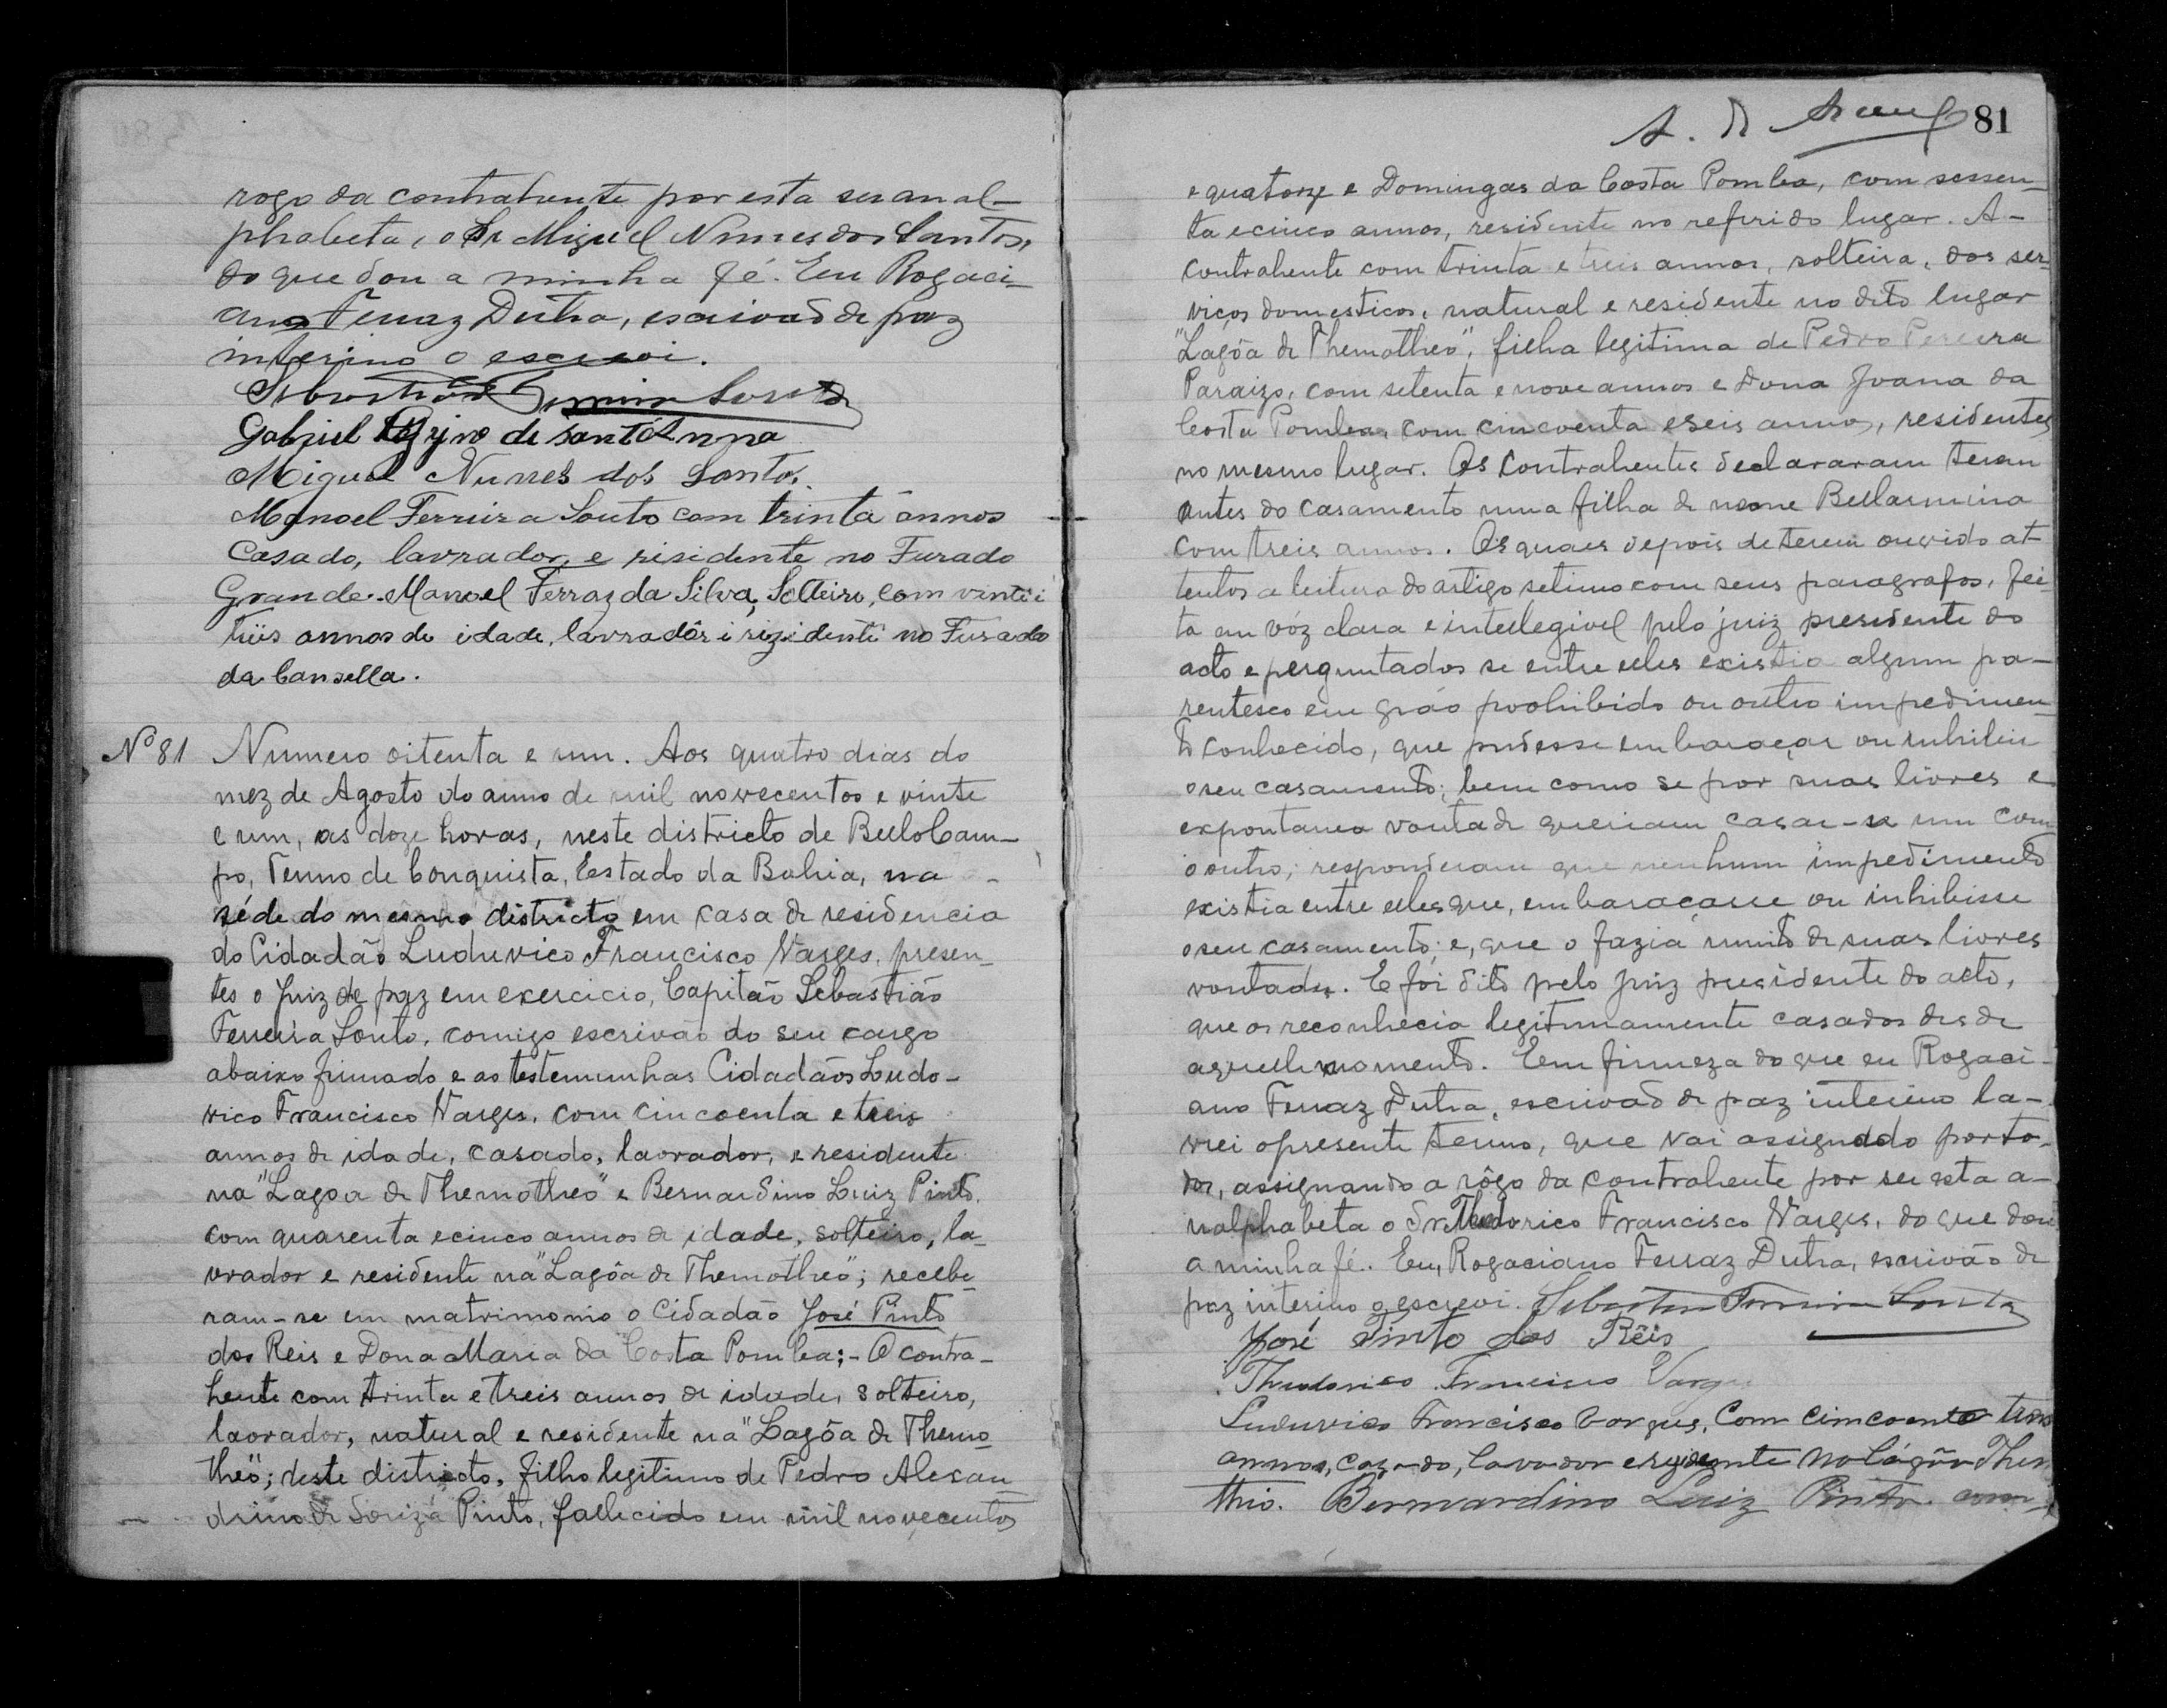 rogo da contrahente por esta ser anal-
phabeta, o Sr Miguel Nunes dos Santos,
do que dou a minha fé. Eu Rogaci-
ano Ferraz Dutra, escrivão de paz
interino o escrevi.
Sebastião Ferreira Souto
Gabriel de Sant'Anna
Miguel Nunes dos Santos.
Manoel Ferreira Souto com trinta ânnos
Casado, lavrador, e risidente no Furado
Grande. Manoel Ferraz da Silva, Solteiro, com vinti i
triis annos de idade, lavradôr i rizidenti no Furado
da Cansella.
Nº 81 Numero oitenta e um. Aos quatro dias do
mez de Agosto do anno de mil novecentos e vinte
e um, as doze horas, neste districto de Bello Cam-
po, Termo de Conquista, Estado da Bahia, na
séde do mesmo districto em casa de residencia
do Cidadão Luduvico Francisco Varges, presen-
tes o Juiz de paz em exercicio, Capitão Sebastião
Ferreira Souto, comigo escrivão do seu cargo
abaixo firmado e as testemunhas Cidadãos Ludo-
vico Francisco Varges, com cincoenta e treis
annos de idade, casado, lavrador, e residente
na "Lagoa de Themotheo" e Bernardino Luiz Pinto,
com quarenta e cinco annos de idade, solteiro, la-
vrador e residente na "Lagôa de Themotheo"; recebe-
ram-se em matrimonio o Cidadão José Pinto
dos Reis e Dona Maria da Costa Pomba; - O contra-
hente com trinta e treis annos de idade, solteiro,
lavrador, natural e residente na "Lagôa de Themo-
theo"; deste districto, filho legitimo de Pedro Alexan-
drino de Souza Pinto, fallecido em mil novecentos
81
e quatorze e Domingas da Costa Pomba, com sessen-
ta e cinco annos, residente no referido lugar. A-
contrahente com trinta e treis annos, solteira, dos ser-
viços domesticos, natural e residente no dito lugar
"Lagôa de Themotheo", filha legitima de Pedro Pereira
Paraizo, com setenta e nove annos e Dona Joana da
Costa Pomba, com cincoenta e seis annos, residentes
no mesmo lugar. Os contrahentes declararam terem
antes do casamento uma filha de nome Bellarmina
com treis annos. Os quaes depois de terem ouvido at-
tentos a leitura do artigo setimo com seus paragrafos, fei-
ta em vóz clara e intellegivel pelo juiz presidente do
acto e perguntados se entre elles existia algum pa-
rentesco em gráo prohibido ou outro impedimen-
to conhecido, que pudesse embaraçar ou inhibir
o seu casamento; bem como se por suas livres e
expontanea vontade queriam casar-se um com
o outro; responderam que nenhum impedimento
existia entre elles que, embaraçasse ou inhibisse
o seu casamento; e, que o fazia muito de suas livres
vontades. E foi dito pelo Juiz presidente do acto,
que os reconhecia legitimamente casados desde
aquelle momento. Em firmeza do que eu Rogaci-
ano Ferraz Dutra, escrivão de paz interino la-
vrei o presente termo, que vai assignado por to-
dos, assignando a rôgo da contrahente por ser esta a-
nalphabeta o Sr Theodorico Francisco Varges, do que dou
a minha fé. Eu, Rogaciano Ferraz Dutra, escrivão de
paz interino o escrevi. Sebastião Ferreira Souto
José Pinto dos Rêis
Theodorico Francisco Varges
Luduvico Francisco Vargus, Com cimcoenta tres
annos, cazado, lavador e rezidente no Lágôa Them
thio. Bernardino Luiz Pinto com